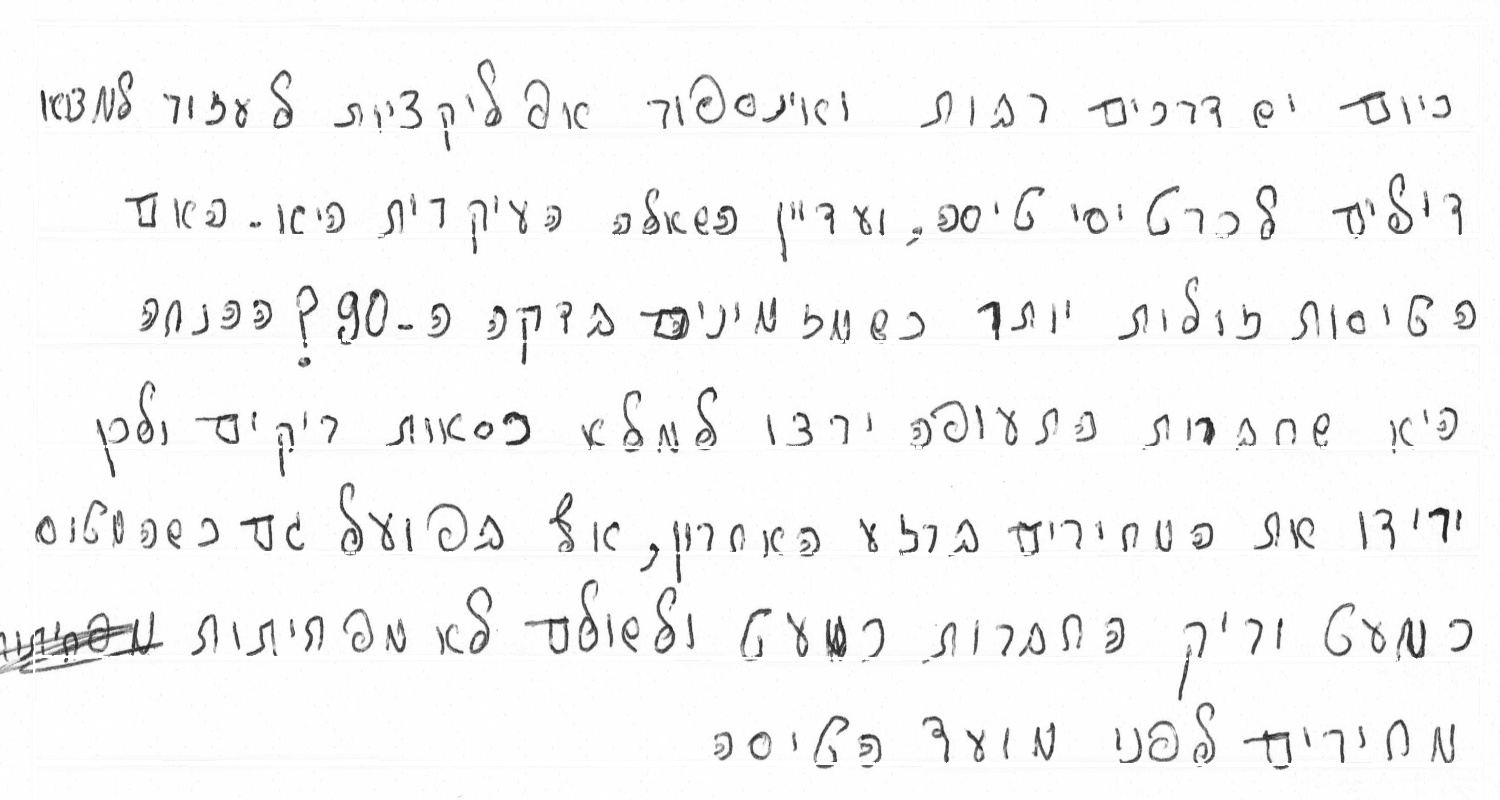 כיום יש דרכים רבות ואינספור אפליקציות לעזור למצוא
דילים לכרטיסי טיסה, ועדיין השאלה העיקרית היא. האם
הטיסות זולות יותר כשמזמינים בדקה ה-90? ההנחה
היא שחברות התעופה ירצו למלא כסאות ריקים ולכן
ירידו את המחירים ברגע האחרון, אך בפועל גם כשהמטוס
כמעט וריק החברות כמעט ולעולם לא מפחיתות
מחירים לפני מועד הטיסה